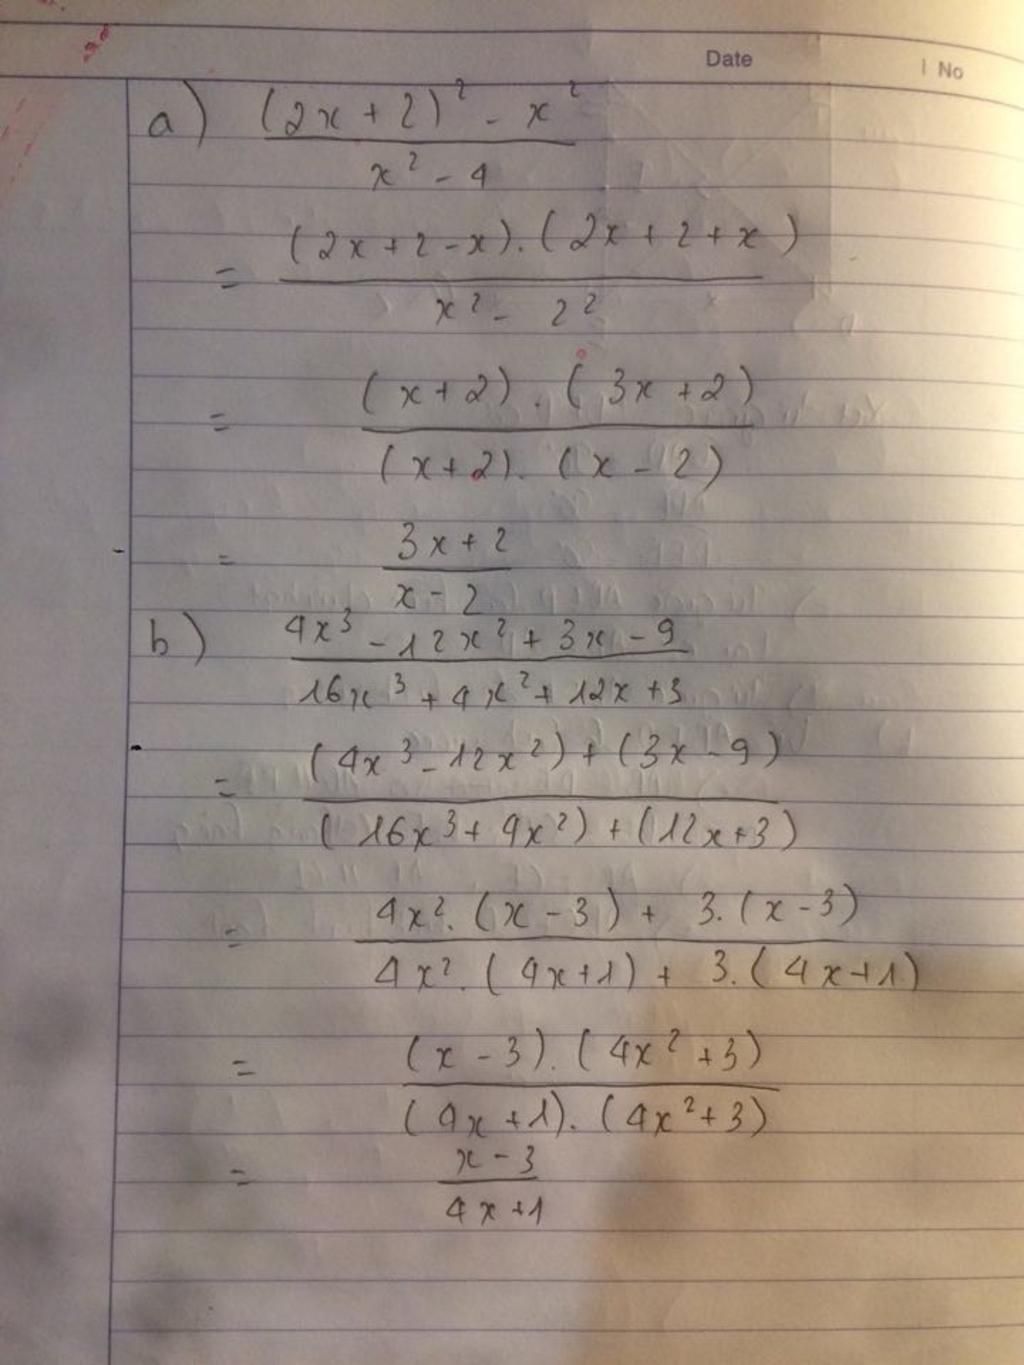 Date | No
a) (2x + 2)² - x²
x² - 4
= (2x + 2 - x).(2x + 2 + x)
x² - 2²
= (x + 2).(3x + 2)
(x + 2).(x - 2)
= 3x + 2
x - 2
b) 4x³ - 12x² + 3x - 9
16x³ + 4x² + 12x + 3
= (4x³ - 12x²) + (3x - 9)
(16x³ + 4x²) + (12x + 3)
= 4x².(x - 3) + 3.(x - 3)
4x².(4x + 1) + 3.(4x + 1)
= (x - 3).(4x² + 3)
(4x + 1).(4x² + 3)
= x - 3
4x + 1